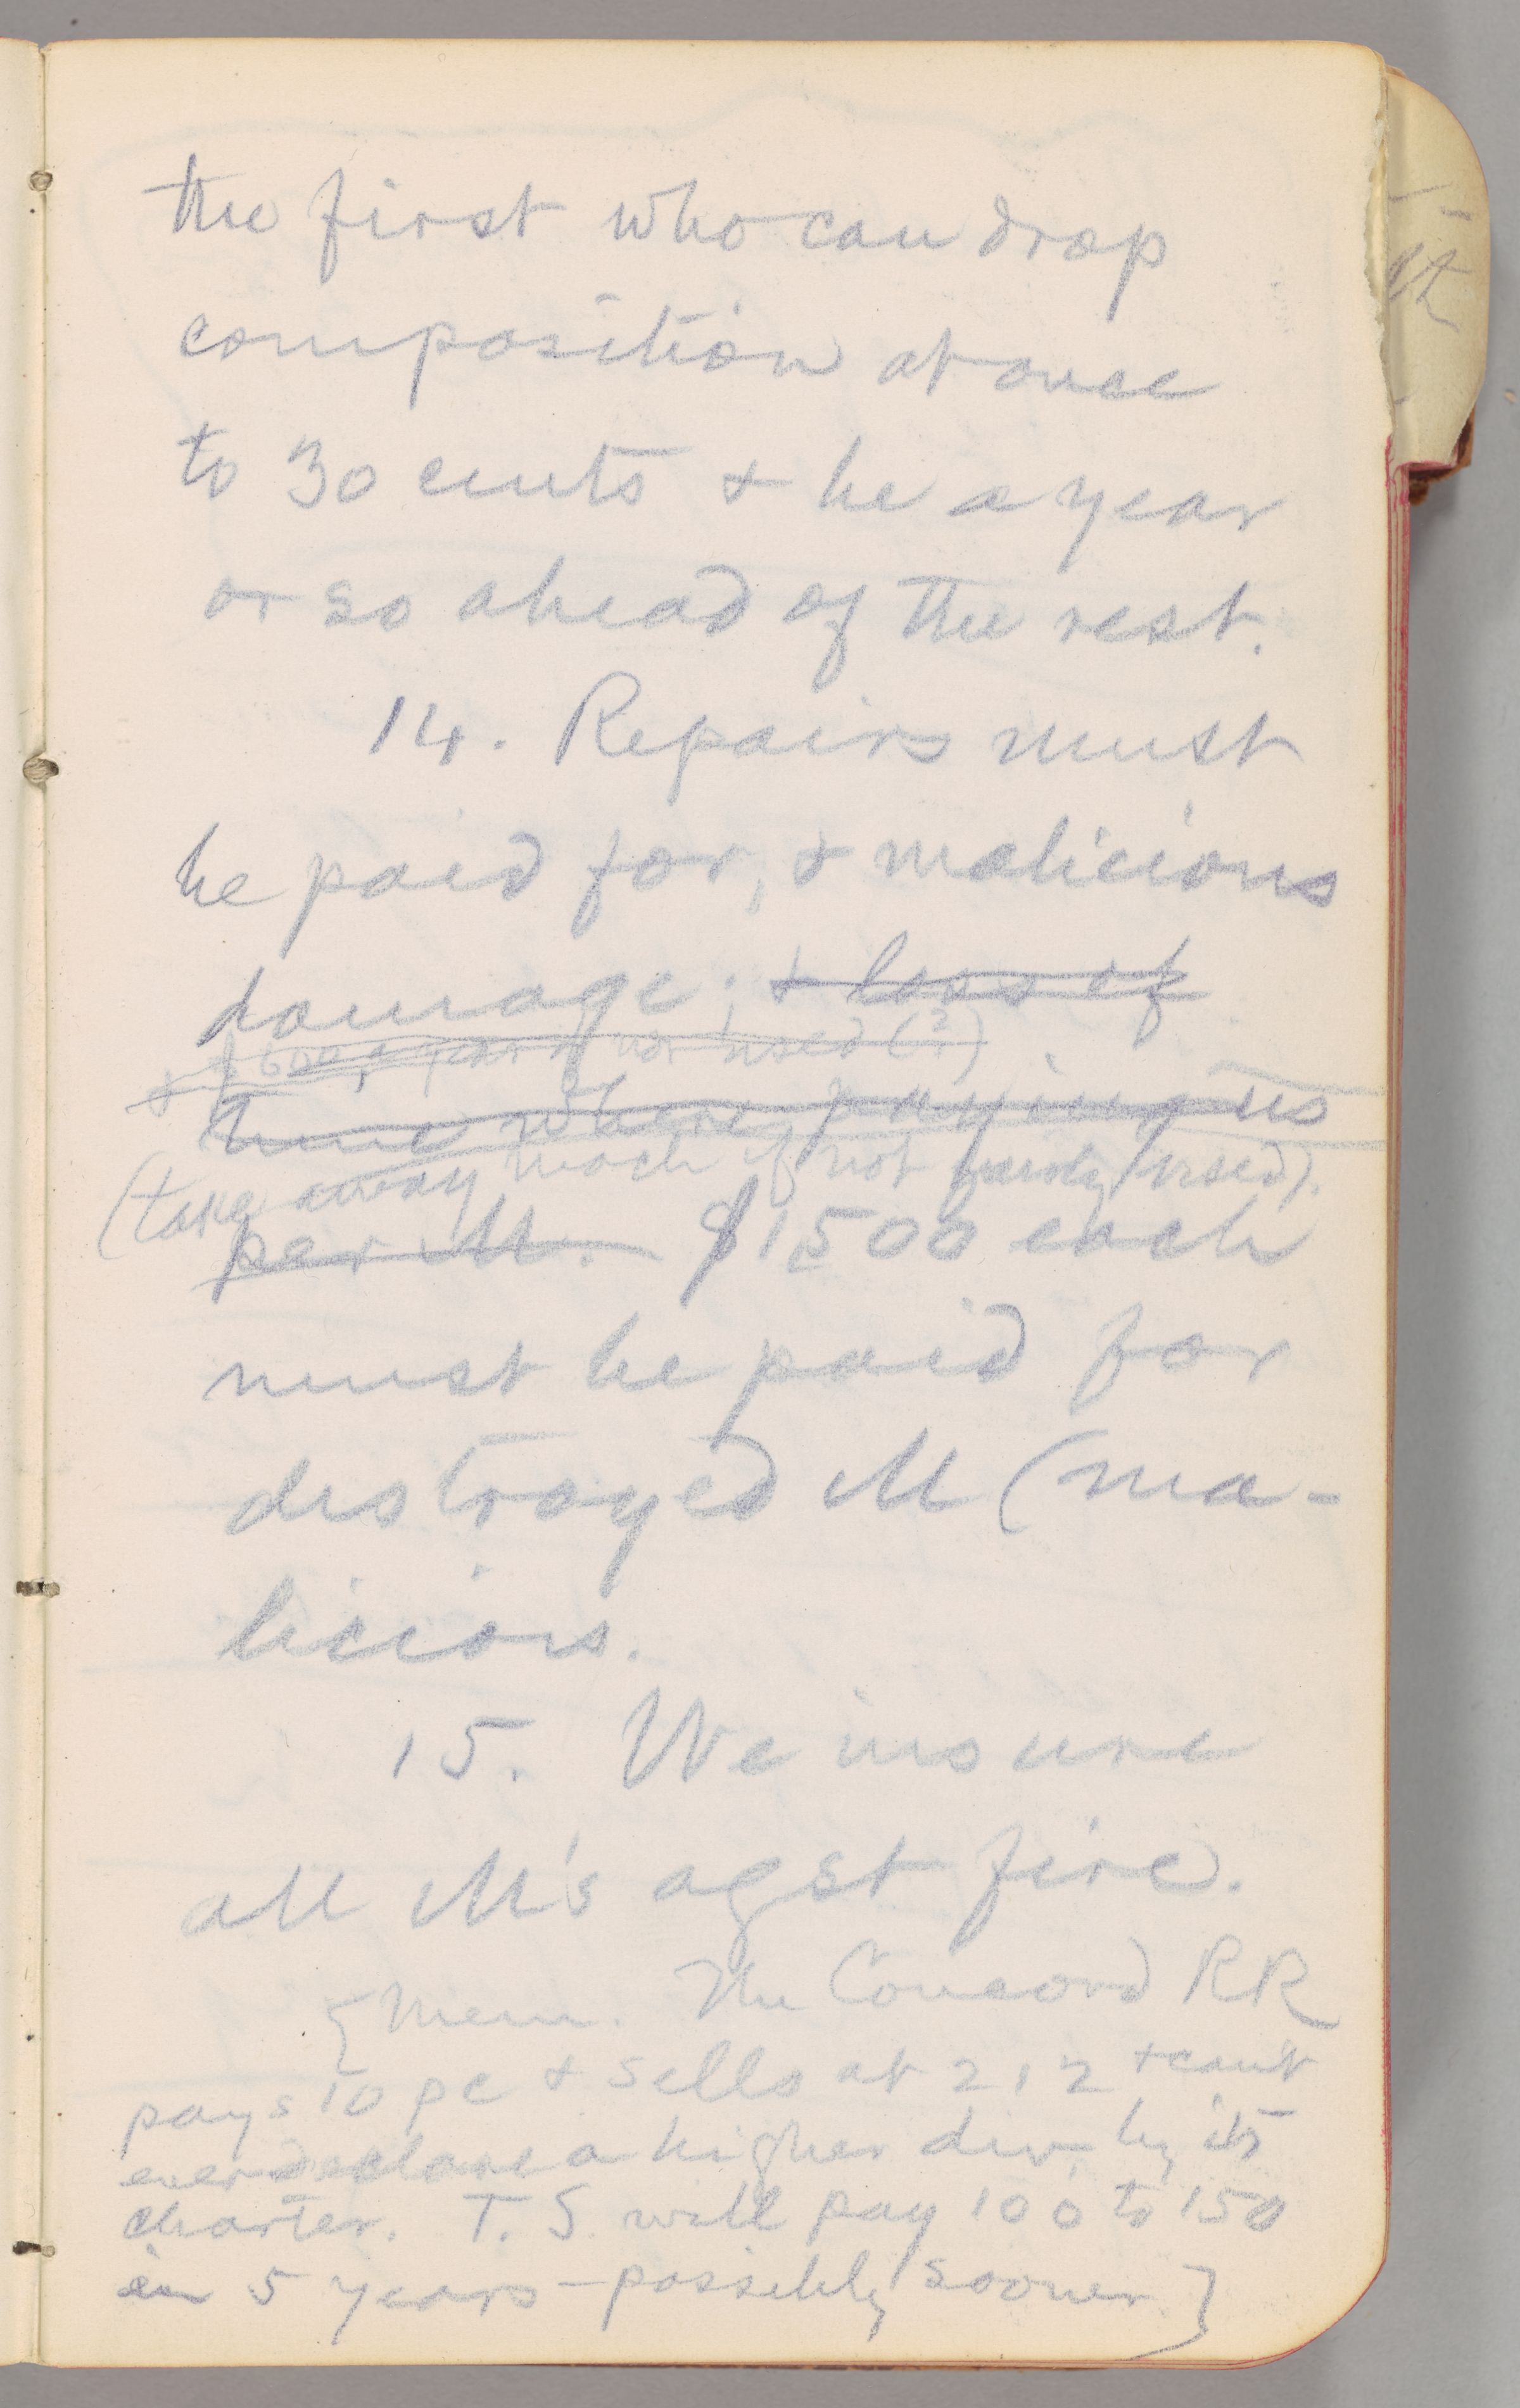 the first who can drop
composition at once
to 30 cents & be a year
or so ahead of the rest.
14. Repairs must
be paid for, & malicious
damage; & loss of
& $600 a year if not used (2)
time where paying us
(take away mach if not used).
per M. $1500 each
must be paid for
destroyed M (ma-
licious.
15. We insure
all M's agst fire.
{Mem. The Concord RR
pays 10 pc & sells at 212 & can't
ever declare a higher div. by its
charter. T. S. will pay 100 to 150
in 5 years - possibly sooner}